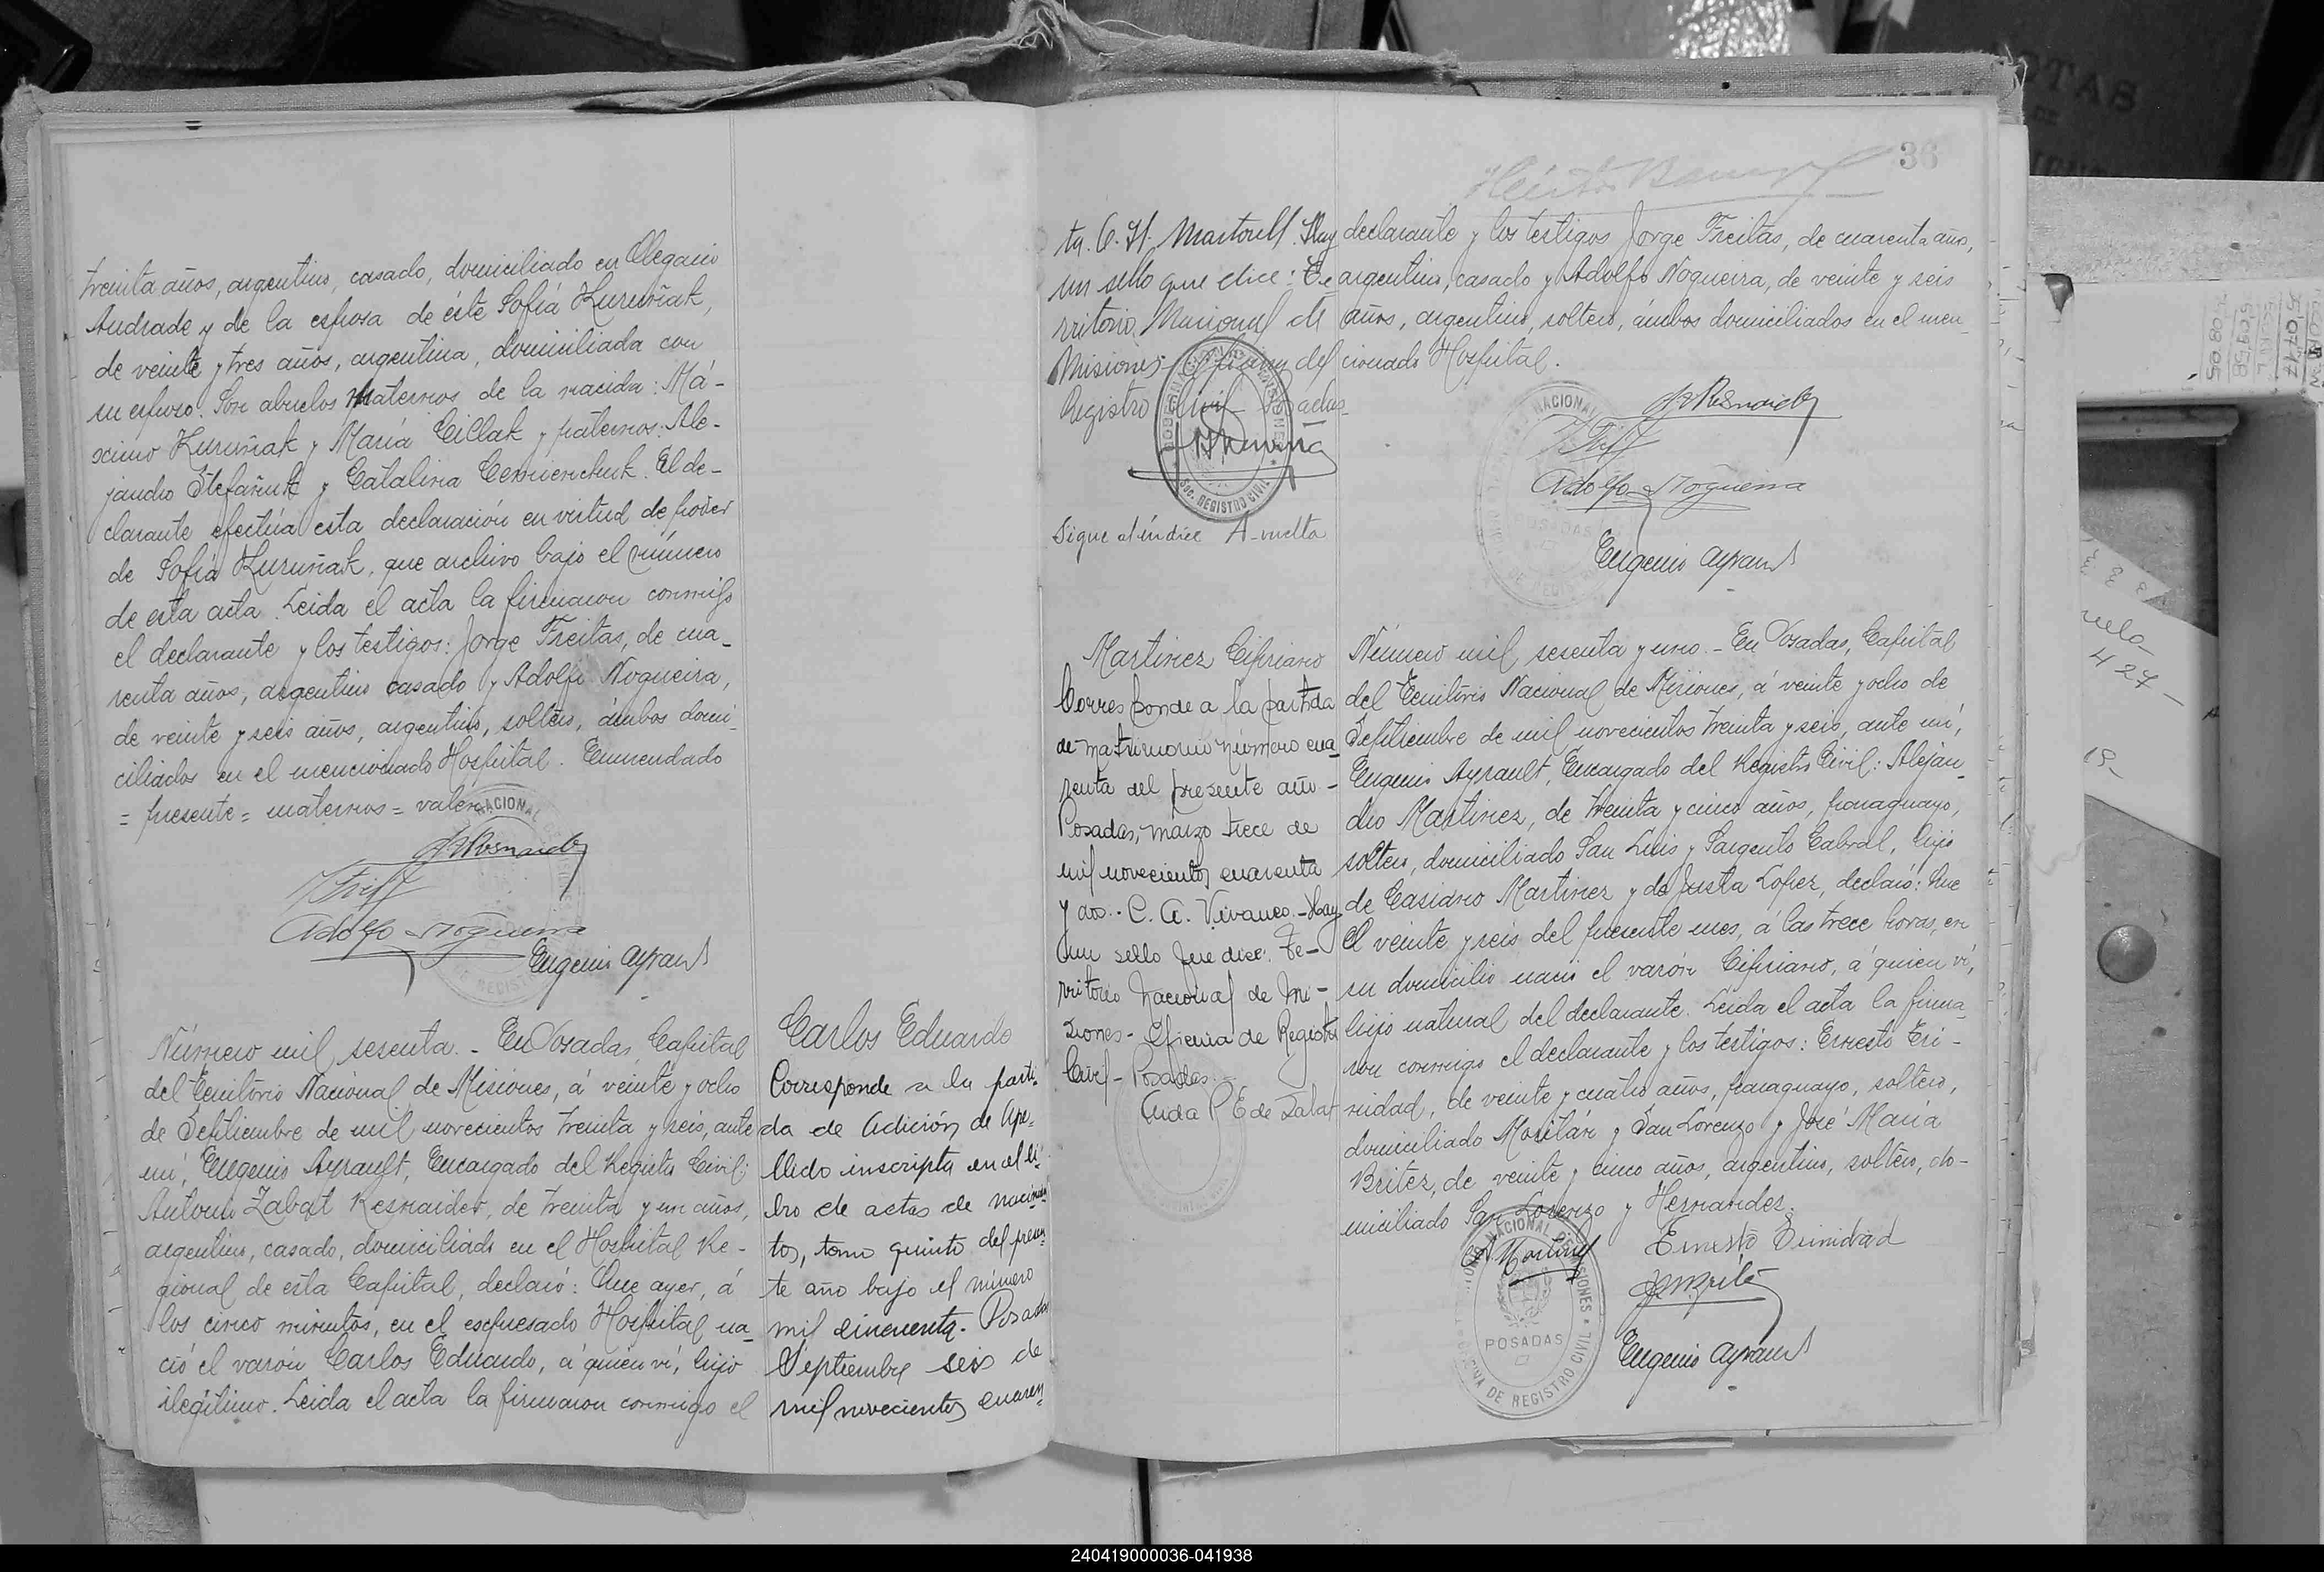 treinta años, argentino, casado, domiciliado en Olegario
Andrade y de la esposa de éste Sofía Kuruñak,
de veinte y tres años, argentina, domiciliada con
su esposo. Son abuelos maternos de la nacida: Má-
ximo Kuruñak y María Cillak y paternos: Ale-
jandro Stefañuk y Catalina. El de-
clarante efectúa esta declaración en virtud de poder
de Sofía Kuruñak, que archivo bajo el número
de esta acta. Leida el acta la firmaron conmigo
el declarante y los testigos: Jorge Freitas, de cua-
renta años, argentino casado y Adolfo Nogueira,
de veinte y seis años, argentino, soltero, ámbos domi-
ciliados en el mencionado Hospital. Enmendado
= presente = maternos = valén.
Adolfo Nogueira
Eugenio Ayrault
Número mil sesenta. - En Posadas, Capital
del Territorio Nacional de Misiones, á veinte y ocho
de Septiembre de mil novecientos treinta y seis, ante
mí, Eugenio Ayrault, Encargado del Registro Civil:
Antonio Zabat Resnaider, de treinta y un años,
argentino, casado, domiciliado en el Hospital Re-
gional de esta Capital, declaró: Que ayer, á
los cinco minutos, en el expresado Hospital na-
ció el varón Carlos Eduardo, á quien ví, hijo
ilegítimo. Leida el acta la firmaron conmigo el
Carlos Eduardo
Corresponde a la parti-
da de Adición de Ape-
llido inscripta en el li-
bro de actas de nacimien
tos, tomo quinto del presen-
te año bajo el número
mil cincuenta. Posadas
Septiembre seis de
mil novecientos cuaren-
36
ta. C. H. Martorell. Hay
un sello que dice: Te-
rritorio Nacional de
Misiones - Oficina del
Registro Civil - Posadas
Sigue al índice A-vuelta
declarante y los testigos Jorge Freitas, de cuarenta años,
argentino, casado y Adolfo Nogueira, de veinte y seis
años, argentino, soltero, ámbos domiciliados en el men
cionado Hospital.
Adolfo Nogueira
Eugenio Ayrault
Martinez Cipriano
Corresponde a la partida
de matrimonio número cua-
renta del presente año -
Posadas, marzo trece de
mil novecientos cuarenta
y dos.- C. A. Vivanco. - Hay
un sello que dice: Te-
rritorio Nacional de Mi-
siones - Oficina de Registro
Civil - Posadas. -
Número mil sesenta y uno. - En Posadas, Capital
del Territorio Nacional de Misiones, á veinte y ocho de
Septiembre de mil novecientos treinta y seis, ante mí,
Eugenio Ayrault, Encargado del Registro Civil: Alejan-
dro Martinez, de treinta y cinco años, paraguayo,
soltero, domiciliado San Luis y Sargento Cabral, hijo
de Casiano Martinez y de Justa Lopez, declaró: Que
el veinte y seis del presente mes, á las trece horas, en
su domicilio nació el varón Cipriano, á quien ví,
hijo natural del declarante. Leida el acta la firma-
ron conmigo el declarante y los testigos: Ernesto Tri-
nidad, de veinte y cuatro años, paraguayo, soltero,
domiciliado Moritán y San Lorenzo y José María
Britez, de veinte y cinco años, argentino, soltero, do-
miciliado San Lorenzo y Hernandez.
A. Martinez
Ernesto Trinidad
J. M. Britez
Eugenio Ayrault
POSADAS
240419000036-041938